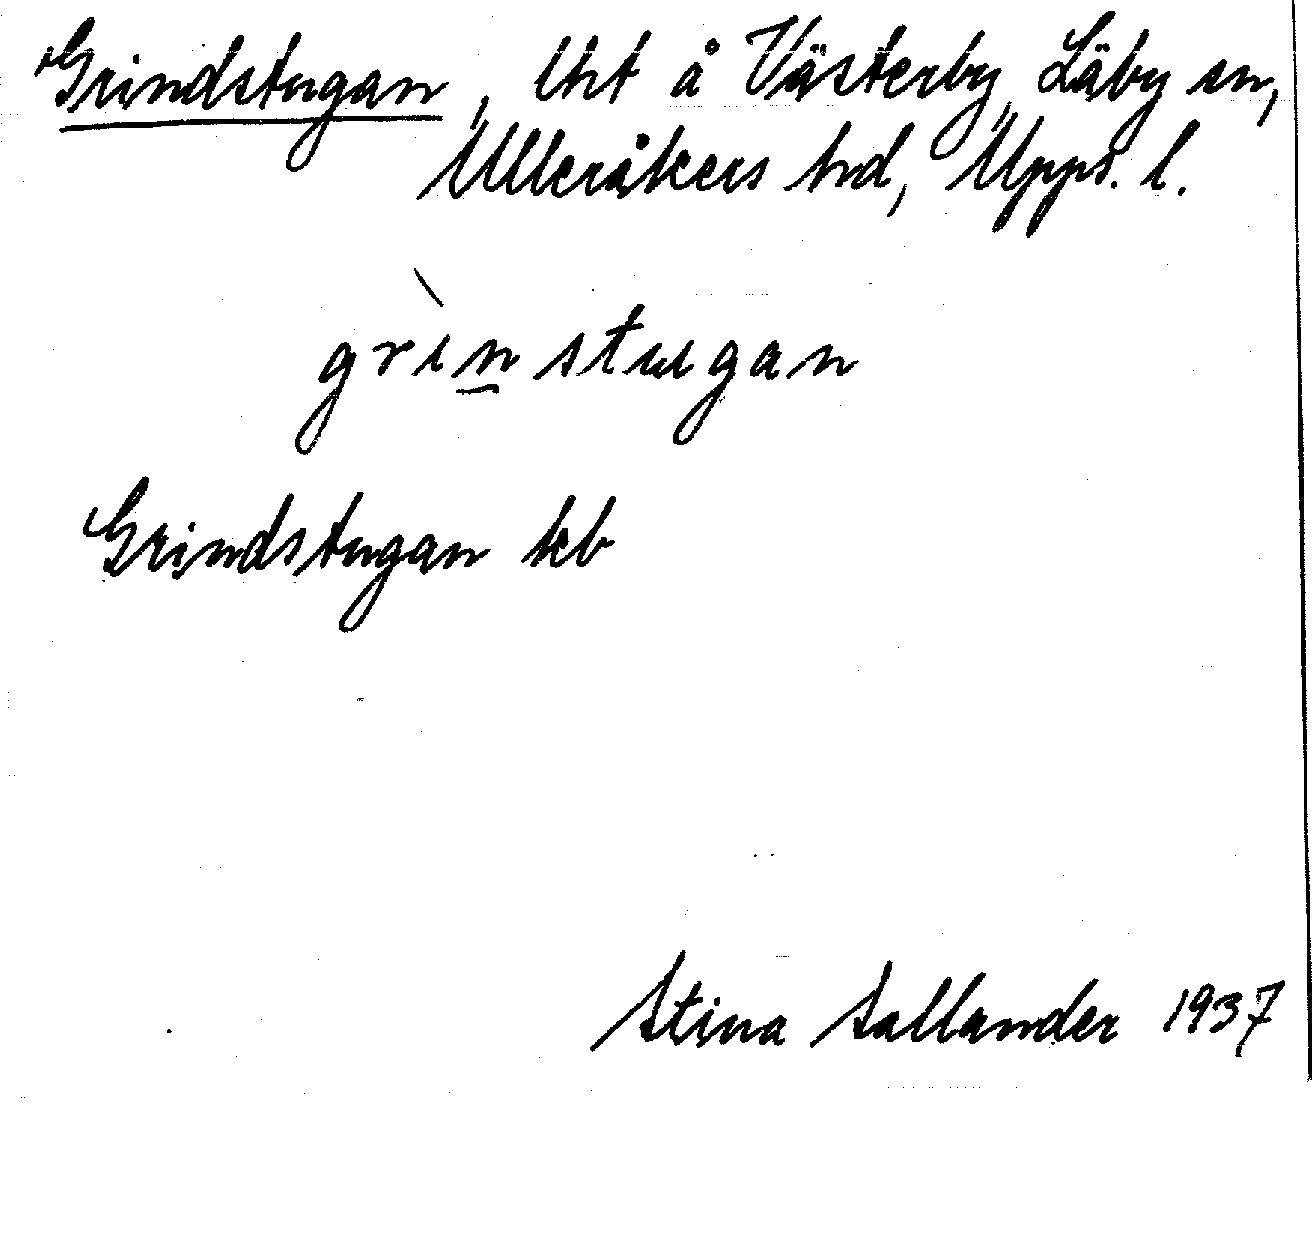 Grindstugan, lht å Västerby, Läby sn,
Ulleråkers hd, Upps. l.
grìn̲stugan
Grindstugan kb
Stina Sallander 1937